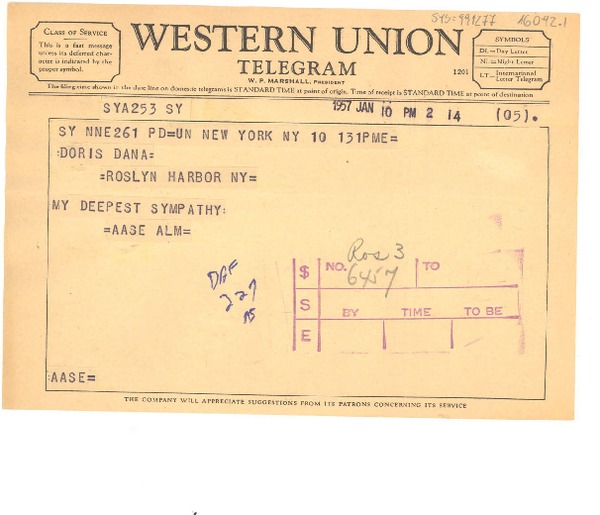 SYS=991277 16042.1
CLASS OF SERVICE
This is a fast message
unless its deferred char-
acter is indicated by the
proper symbol.
WESTERN UNION
TELEGRAM
W. P. MARSHALL, PRESIDENT
1201
SYMBOLS
DL=Day Letter
NL=Night Letter
LT=International Letter Telegram
The filing time shown in the date line on domestic telegrams is STANDARD TIME at point of origin. Time of receipt is STANDARD TIME at point of destination
SYA253 SY
1957 JAN 10 PM 2 14
(05).
SY NNE261 PD=UN NEW YORK NY 10 131PME=
:DORIS DANA=
=ROSLYN HARBOR NY=
MY DEEPEST SYMPATHY:
=AASE ALM=
Ros 3
$ NO. 6457 TO
S BY TIME TO BE
E
227
AASE=
THE COMPANY WILL APPRECIATE SUGGESTIONS FROM ITS PATRONS CONCERNING ITS SERVICE